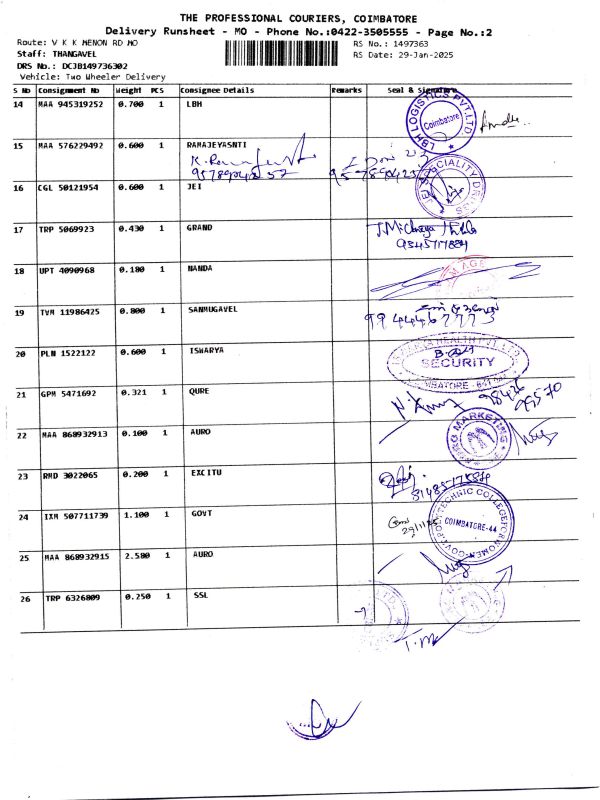 THE PROFESSIONAL COURIERS, COIMBATORE
Delivery Runsheet - MO - Phone No.:0422-3505555 - Page No.:2
Route: V K K MENON RD MO RS No.: 1497363
Staff: THANGAVEL RS Date: 29-Jan-2025
DRS No.: DCJB149736302
Vehicle: Two Wheeler Delivery
S No Consignment No Weight PCS Consignee Details Remarks Seal & Signature
14 MAA 945319252 0.700 1 LBH
LBH LOGISTICS PVT.LTD. Coimbatore
15 MAA 576229492 0.600 1 RAMAJEYASNTI
16 CGL 50121954 0.600 1 JEI
JEI SPECIALITY DRUGS
17 TRP 5069923 0.430 1 GRAND
18 UPT 4090968 0.180 1 NANDA
19 TVM 11986425 0.800 1 SANMUGAVEL
9944467773
20 PLN 1522122 0.600 1 ISWARYA
HEALTH PVT. LTD.
SECURITY
21 GPM 5471692 0.321 1 QURE
98426 99570
22 MAA 868932913 0.100 1 AURO
MARKETING
23 RMD 3022065 0.200 1 EXCITU
24 IXM 507711739 1.100 1 GOVT
GOVT.POLYTECHNIC COLLEGE FOR WOMEN COIMBATORE-44
25 MAA 868932915 2.580 1 AURO
26 TRP 6326809 0.250 1 SSL